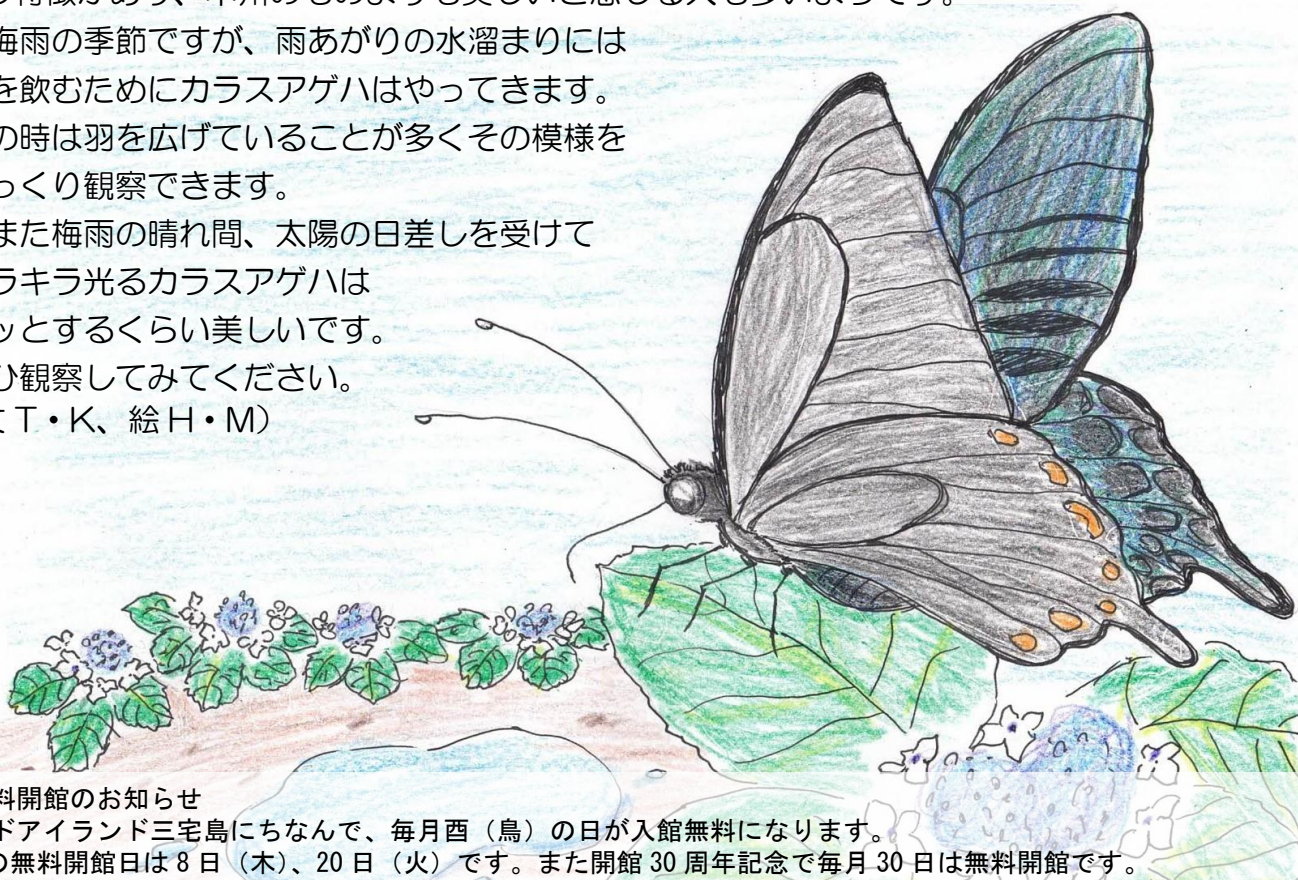 特徴があり、本州のものよりも美しいと感じる人も多いようです。
梅雨の季節ですが、雨あがりの水溜まりには
を飲むためにカラスアゲハはやってきます。
の時は羽を広げていることが多くその模様を
っくり観察できます。
また梅雨の晴れ間、太陽の日差しを受けて
ラキラ光るカラスアゲハは
ッとするくらい美しいです。
ひ観察してみてください。
T・K、絵 H・M）
料開館のお知らせ
ドアイランド三宅島にちなんで、毎月酉（鳥）の日が入館無料になります。
の無料開館日は 8 日（木）、20 日（火）です。また開館 30 周年記念で毎月 30 日は無料開館です。